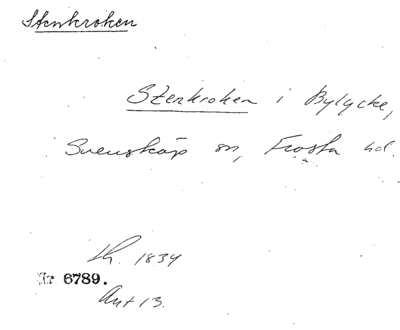 Stenkroken
Stenkroken i Bylycke,
Svensköp sn, Frosta hd.
Lh. 1834
Nr 6789.
Ant 13.